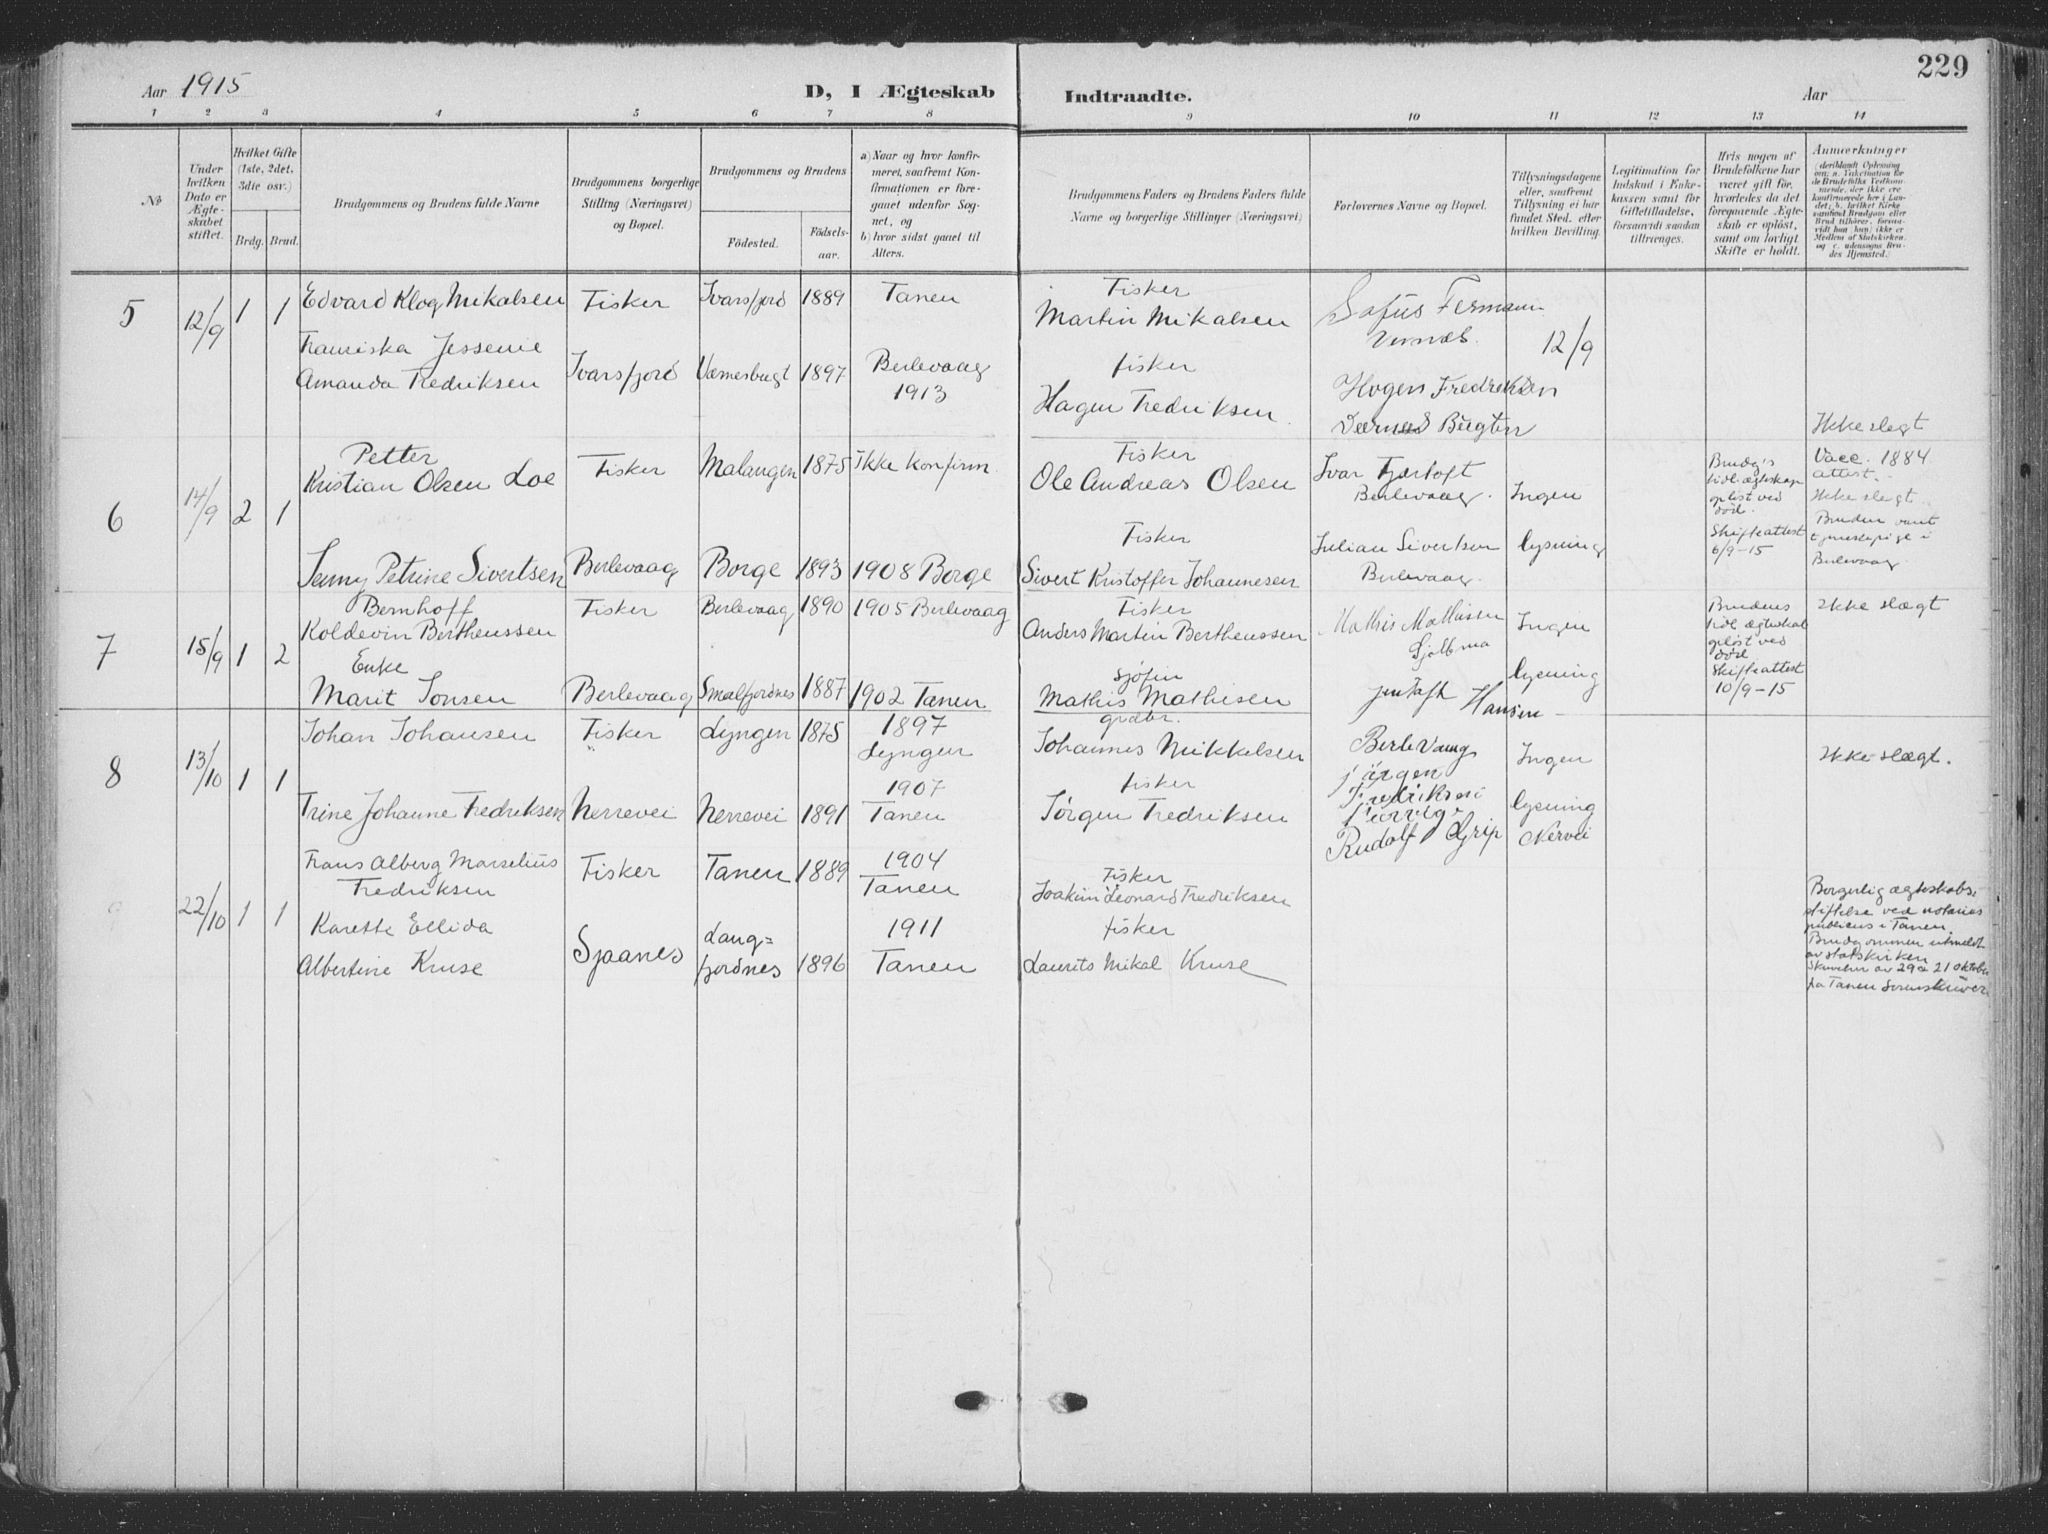 229
Aar 1915
D, I Ægteskab Indtraadte.
Aar
1 2 3 4 5 6 7 8 9 10 11 12 13 14
No
Under hvilken Dato er Ægteskabet stiftet.
Hvilket Gifte (1ste, 2det, 3die osv.)
Brdg. Brud.
Brudgommens og Brudens fulde Navne
Brudgommens borgerlige Stilling (Næringsvei) og Bopæl.
Brudgommens og Brudens
Fødested.
Fødselsaar.
a) Naar og hvor konfirmeret, saafremt Konfirmationen er foregaaet udenfor Sognet, og
b) hvor sidst gaaet til Alters.
Brudgommens Faders og Brudens Faders fulde Navne og borgerlige Stillinger (Næringsvei)
Forlovernes Navne og Bopæl.
Tillysningsdagene eller, saafremt Tillysning ei har fundet Sted, efter hvilken Bevilling.
Legitimation for Indskud i Enkekassen samt for Giftetilladelse, forsaavidt saadan tiltrænges.
Hvis nogen af Brudefolkene har været gift før, hvorledes da det foregaaende Ægteskab er opløst, samt om lovligt Skifte er holdt.
Anmærkninger
5 12/9 1 1
Edvard Klog Mikalsen Fisker Ivarsfjord 1889 Tanen
Fisker
Martin Mikalsen
Sofus Fermann
12/9
Franciska Jessenie
Amanda Fredriksen Ivarsfjord Værnesbugt 1897 Berlevaag
1913
fisker
Hagen Fredriksen
Hagen Fredriksen
Bugten
Ikke slegt
6 14/9 2 1
Petter
Kristian Olsen Loe Fisker Malangen 1875 Ikke konfirm.
Fisker
Ole Andreas Olsen
Ivar Fjærtoft
Berlevaag.
Ingen
Brudg's
tidl. ægteskap
opløst ved
død.
Skifteattest
6/9-15
Vacc. 1884
attest.
Ikke slegt
Bruden vært
tjenestepige i
Berlevaag.
Jenny Petrine Sivertsen Berlevaag Borge 1893 1908 Borge
Fisker
Sivert Kristoffer Johannesen
Julian Sivertsen
Berlevaag.
lysning
7 15/9 1 2
Bernhoff
Koldevin Bertheussen Fisker Berlevaag 1890 1905 Berlevaag
Fisker
Anders Martin Bertheussen
Mathis Mathissen
Ingen
Brudens
tidl. ægteskab
opløst ved
død
Skifteattest
10/9-15
Ikke slægt
Enke
Marit Jonsen Berlevaag Smalfjordnes 1887 1902 Tanen
sjøfin
Mathis Mathisen
Hansen
lysning
8 13/10 1 1
Johan Johansen Fisker Lyngen 1875 1897
Lyngen
grdbr.
Johannes Mikkelsen
Berlevaag
Ingen
Ikke slægt.
Trine Johanne Fredriksen Nerrevei Nerrevei 1891 1907
Tanen
fisker
Jørgen Fredriksen
Jørgen
Fredriksen
Rudolf Grip Nervei
lysning
9 22/10 1 1
Frans Alberg Marselius
Fredriksen Fisker Tanen 1889 1904
Tanen
Fisker
Joakim Leonard Fredriksen
Karette Ellida
Albertine Kruse Sjaanes Lang=
fjordnes 1896 1911
Tanen
fisker
Laurits Mikal Kruse
Borgerlig ægteskabs-
stiftelse ved notarius
publicus i Tanen.
Brudgommen utmeldt
av statskirken
Skrivelser av 29 21 oktober
fra Tanen Sorenskriver